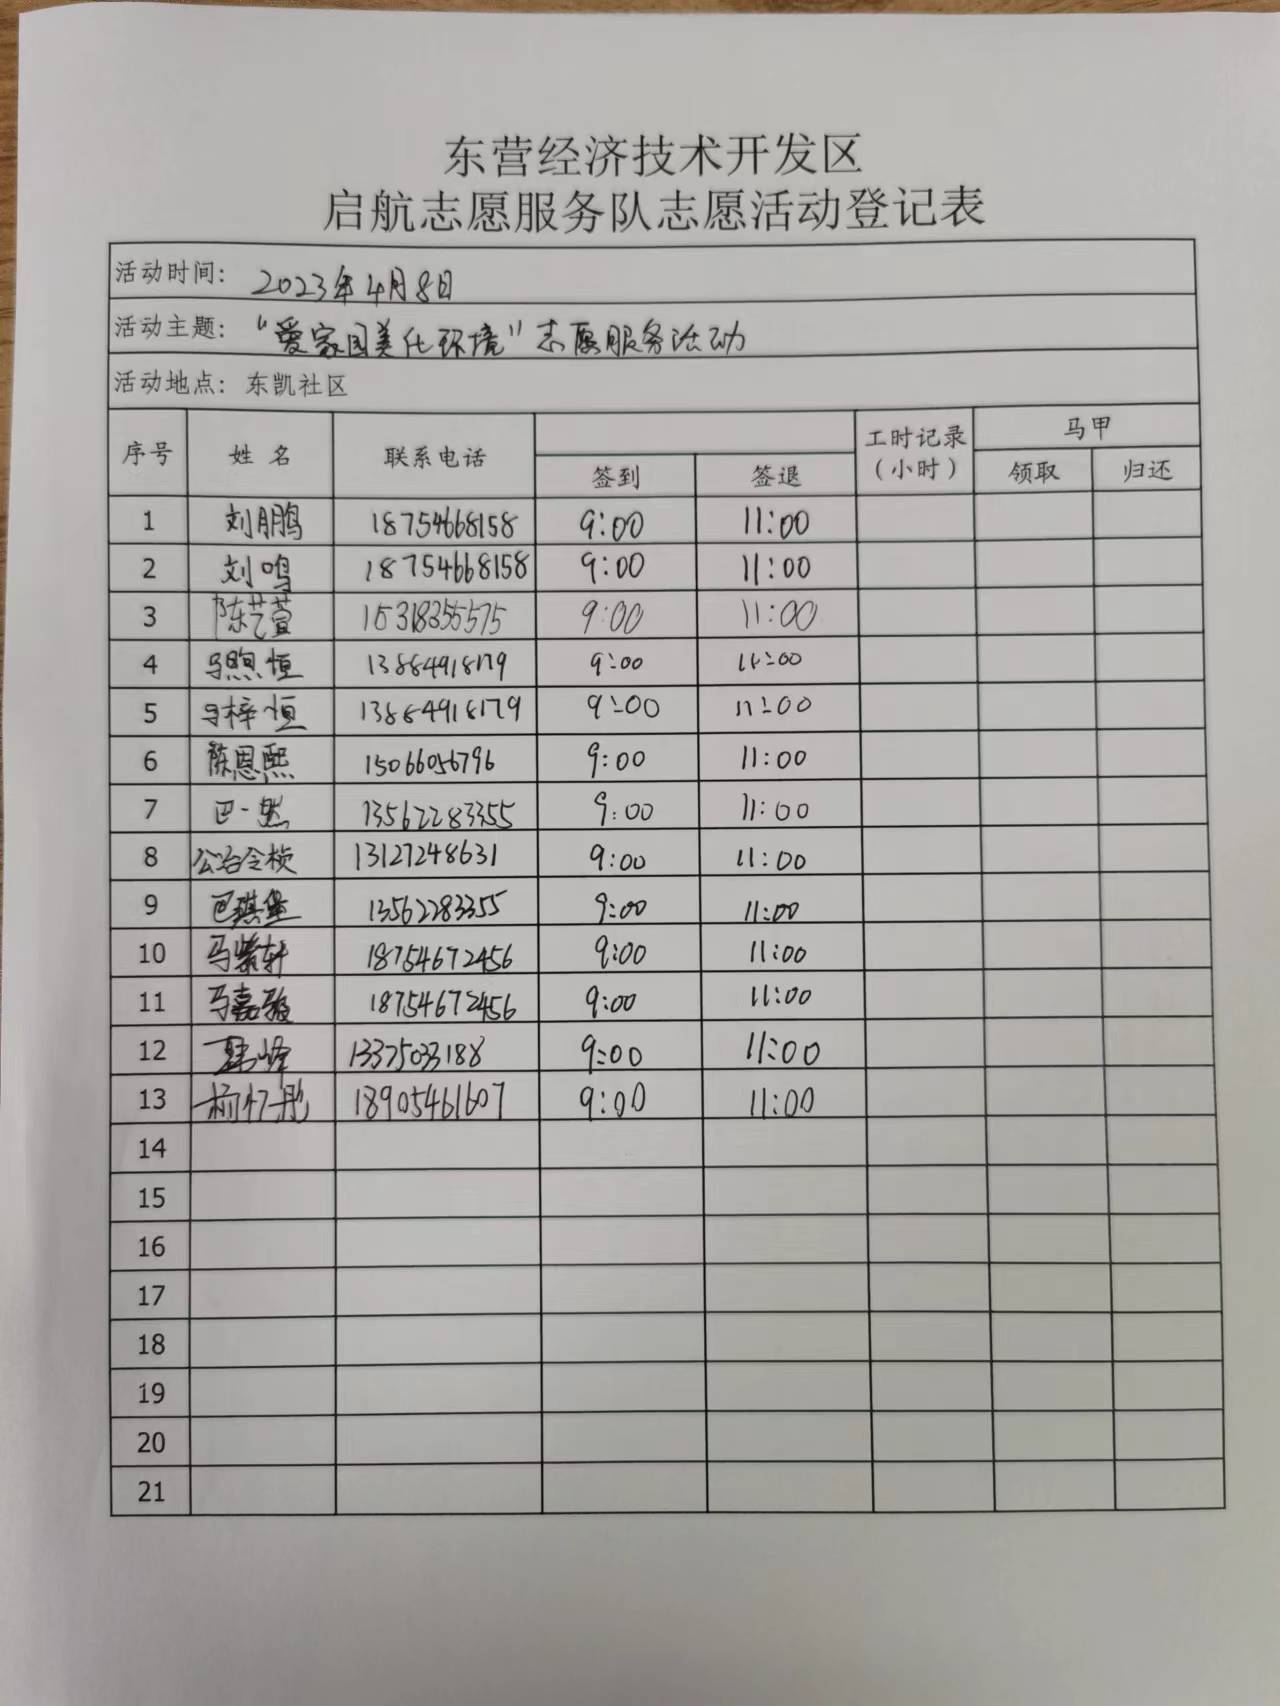 东营经济技术开发区
启航志愿服务队志愿活动登记表
活动时间: 2023年4月8日
活动主题: "爱家园美化环境"志愿服务活动
活动地点: 东凯社区
序号 姓名 联系电话 工时记录(小时) 马甲
签到 签退 领取 归还
1 刘鹏 18754668158 9:00 11:00
2 刘鸣 18754668158 9:00 11:00
3 陈艺萱 15318355575 9:00 11:00
4 马煦恒 13884918179 9:00 11:00
5 马梓恒 13884918179 9:00 11:00
6 陈恩熙 15066056796 9:00 11:00
7 巴一 13562283355 9:00 11:00
8 公冶令桢 13127248631 9:00 11:00
9 巴 13562283355 9:00 11:00
10 马紫轩 18754672456 9:00 11:00
11 马嘉骏 18754672456 9:00 11:00
12 13375033188 9:00 11:00
13 杨忆彤 18905461607 9:00 11:00
14
15
16
17
18
19
20
21